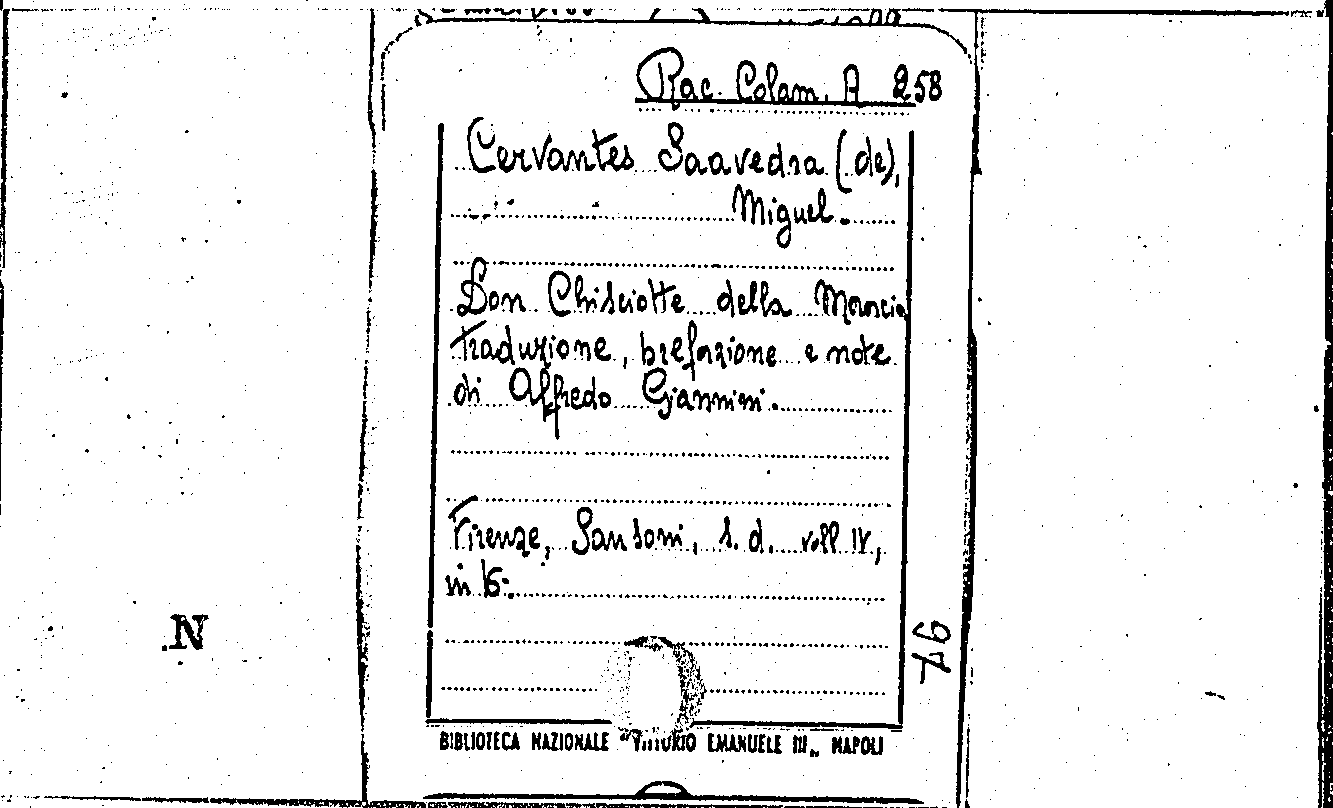 Rac. Colam. A 258
Cervantes Saavedra (de),
Miguel.
Don Chisciotte della Mancia
traduzione, prefazione e note
di Alfredo Giannini.
Firenze, Sansoni, s.d. voll IV,
in 16:
76
N
BIBLIOTECA NAZIONALE "VITTORIO EMANUELE III„ NAPOLI